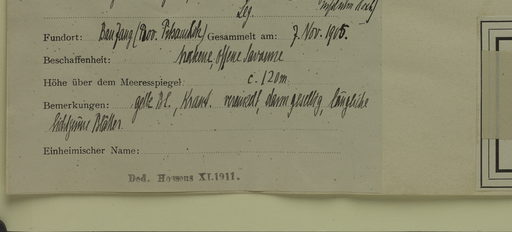 Leg.
Fundort: Ban Yang (Prov. Pitsanulok) Gesammelt am: 7. Nov. 1905.
Beschaffenheit: trockene, offene Savanne
Höhe über dem Meeresspiegel: c. 120 m.
Bemerkungen: gelbe Bl., Kraut. vereinzelt, dann gesellig, längliche
lichtgrüne Blätter.
Einheimischer Name:
Ded. Hosseus XI.1911.